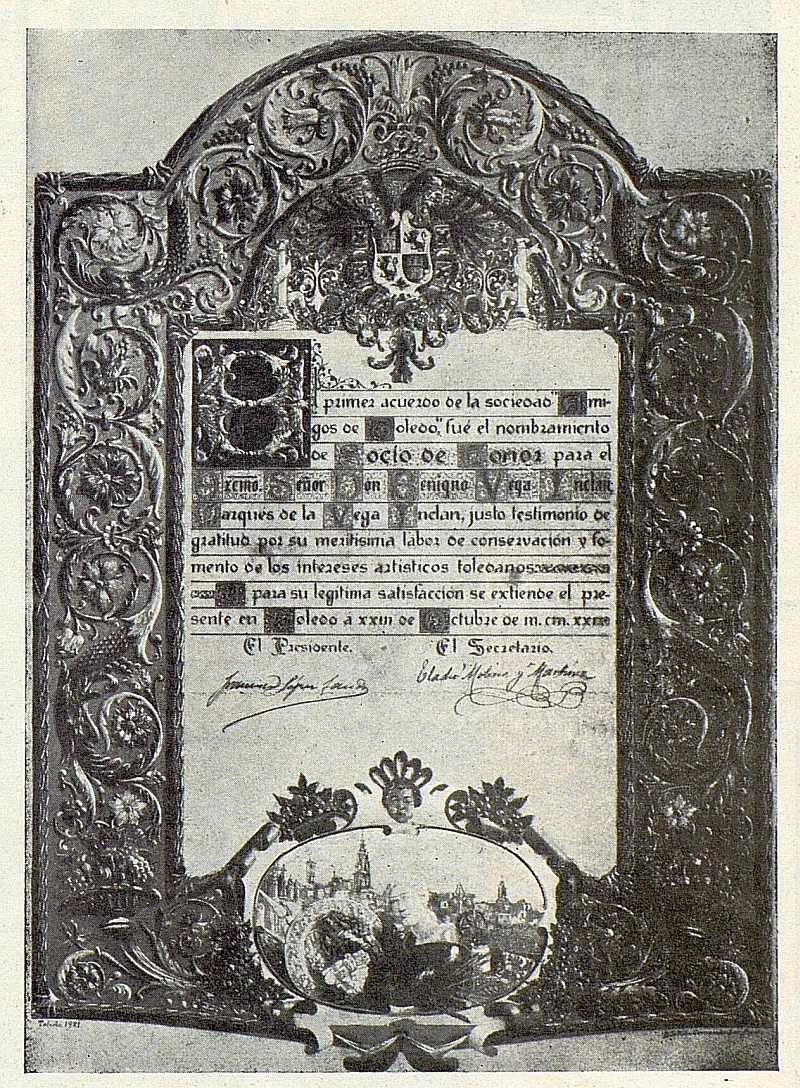 El primer acuerdo de la sociedad "Ami-
gos de Toledo", fué el nombramiento
de Socio de Honor para el
Excmo. Señor Don Benigno Vega Inclan,
Marqués de la Vega Inclan, justo testimonio de
gratitud por su meritisima labor de conservación y fo-
mento de los intereses artisticos toledanos
Y para su legitima satisfacción se extiende el pre-
sente en Toledo a xxiii de Octubre de m. cm.
El Presidente. El Secretario.
Eladio Molina y Martínez